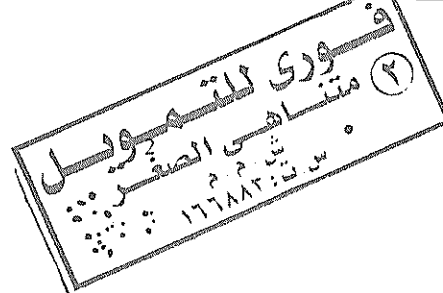 فورى للتمويل
متناهى الصغر ٢
ش.م.م
س.ت: ١٦٦٨٨٣